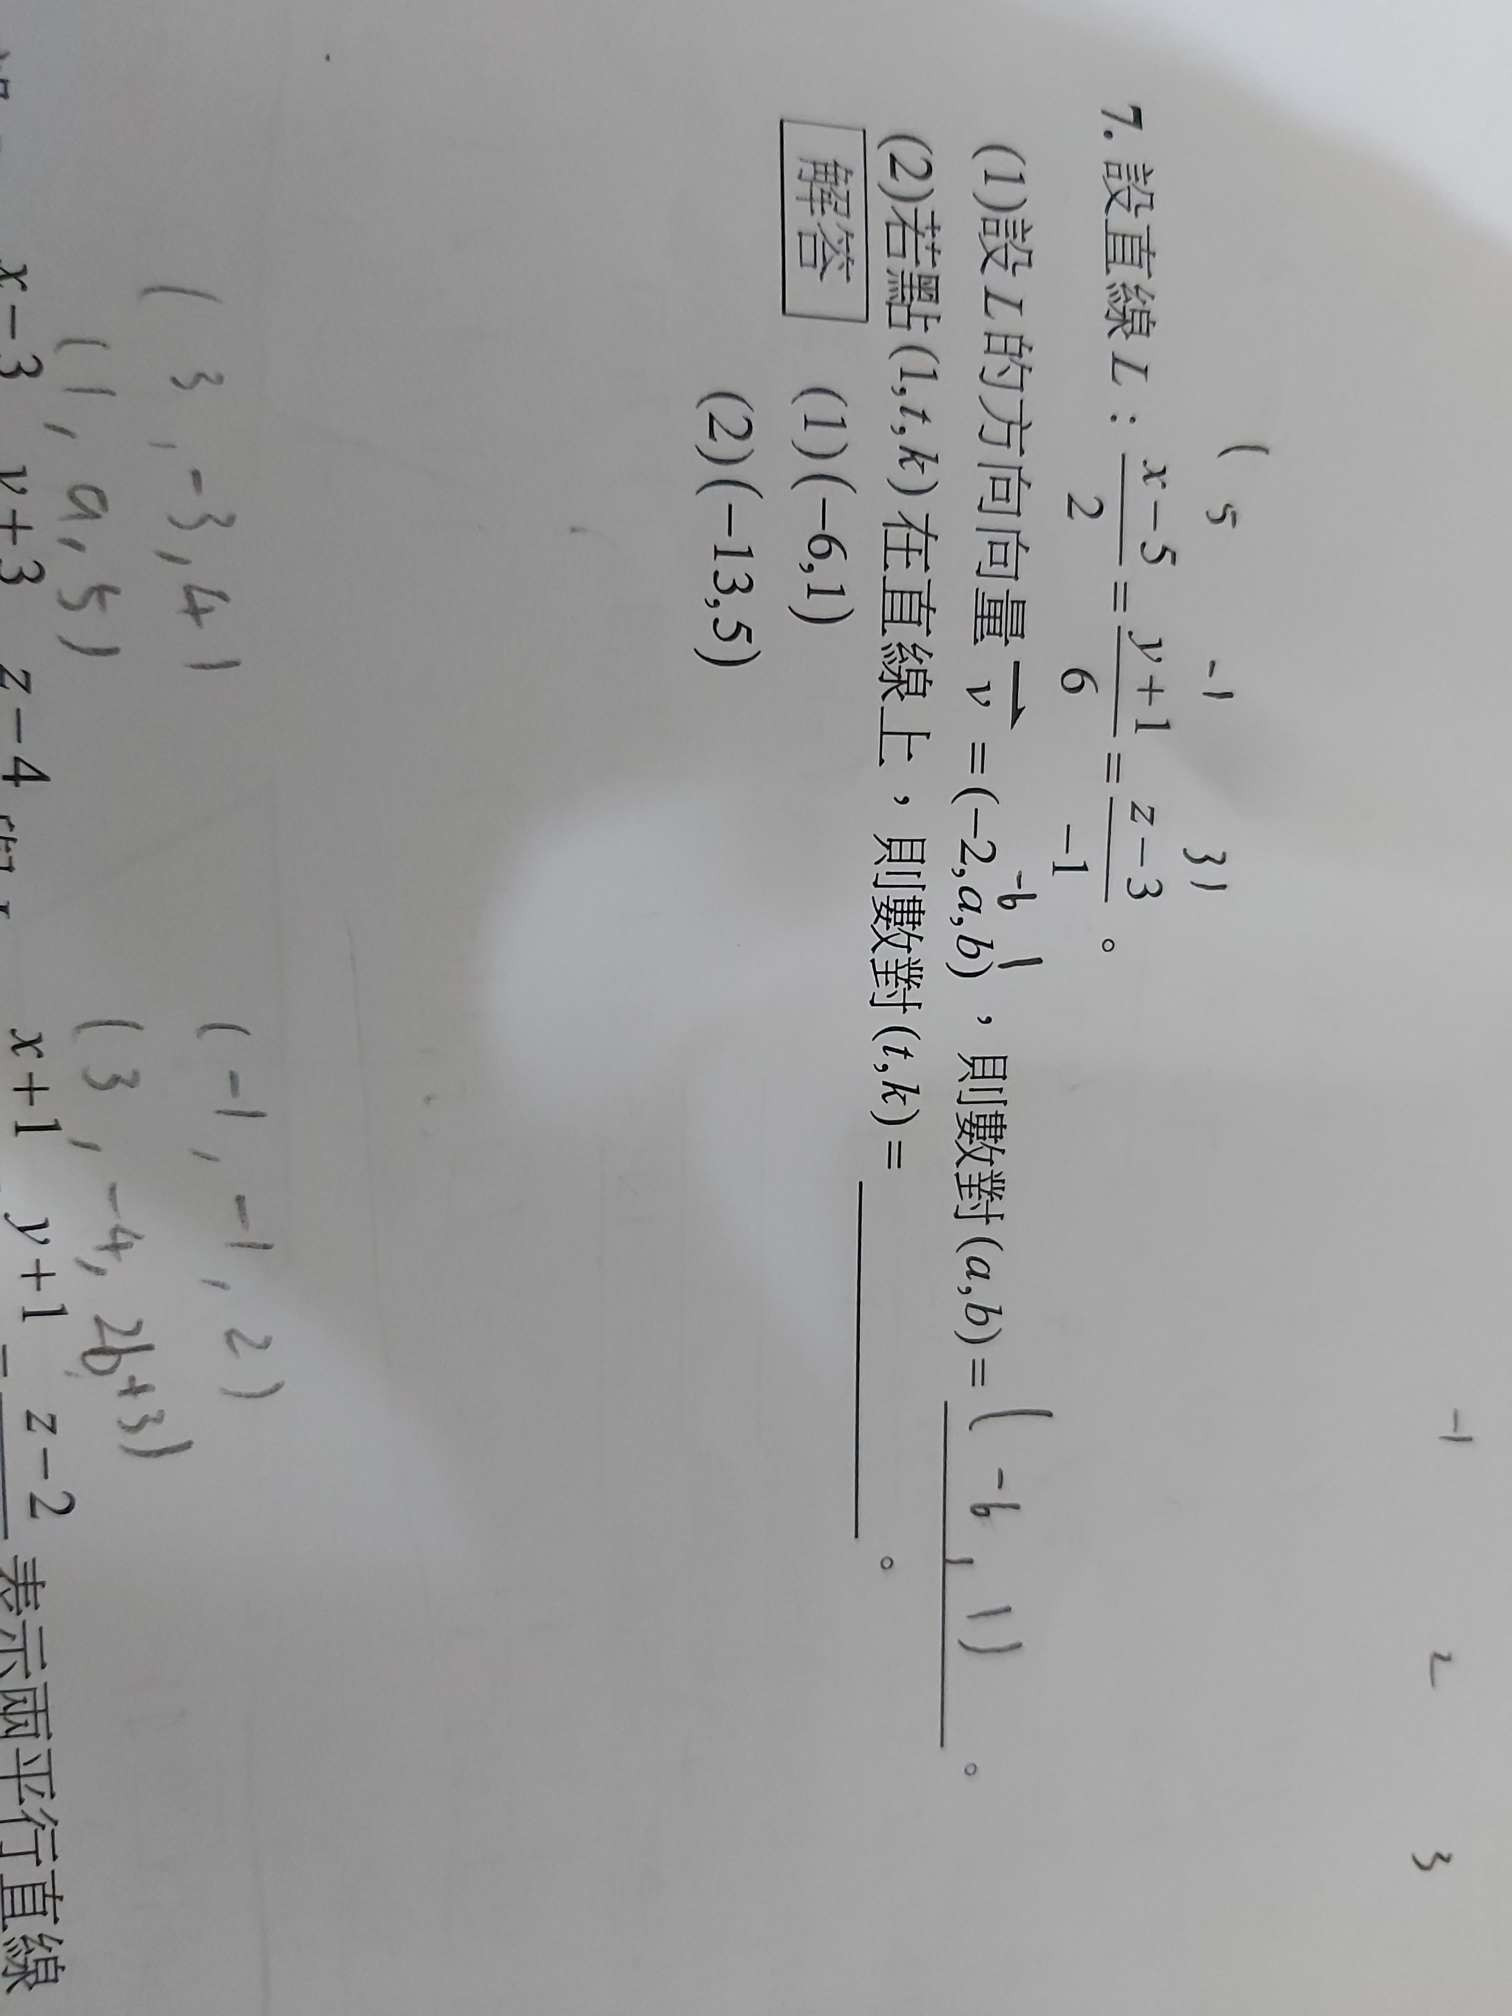 -1 2 3
( 5 -1 3)
7. 設直線 L : \frac{x-5}{2} = \frac{y+1}{6} = \frac{z-3}{-1} 。
-6 1
(1)設 L 的方向向量 \overrightarrow{v} = (-2,a,b) ,則數對(a,b) = (-6, 1) 。
(2)若點(1,t,k)在直線上,則數對(t,k) = ________ 。
解答 (1)(-6,1)
(2)(-13,5)
(3,-3,4) (-1,-1,2)
(1,a,5) (3,-4,2b+3)
x-3 y+3 z-4 x+1 y+1 = z-2 表示兩平行直線